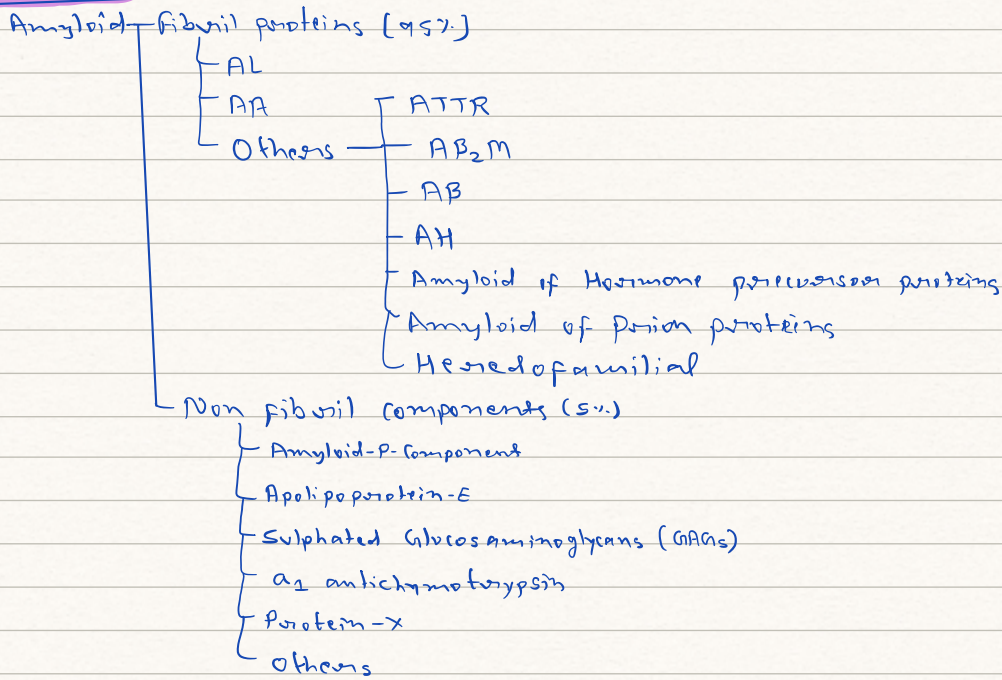 Amyloid Fibril proteins [95%]
AL
AA
Others
ATTR
AB₂M
AB
AH
Amyloid of Hormone precursor proteins
Amyloid of Prion proteins
Heredofamilial
Non fibril components (5%)
Amyloid-P-Component
Apolipoprotein-E
Sulphated Glucosaminoglycans (GAGs)
a₁ antichymotrypsin
Protein-X
Others